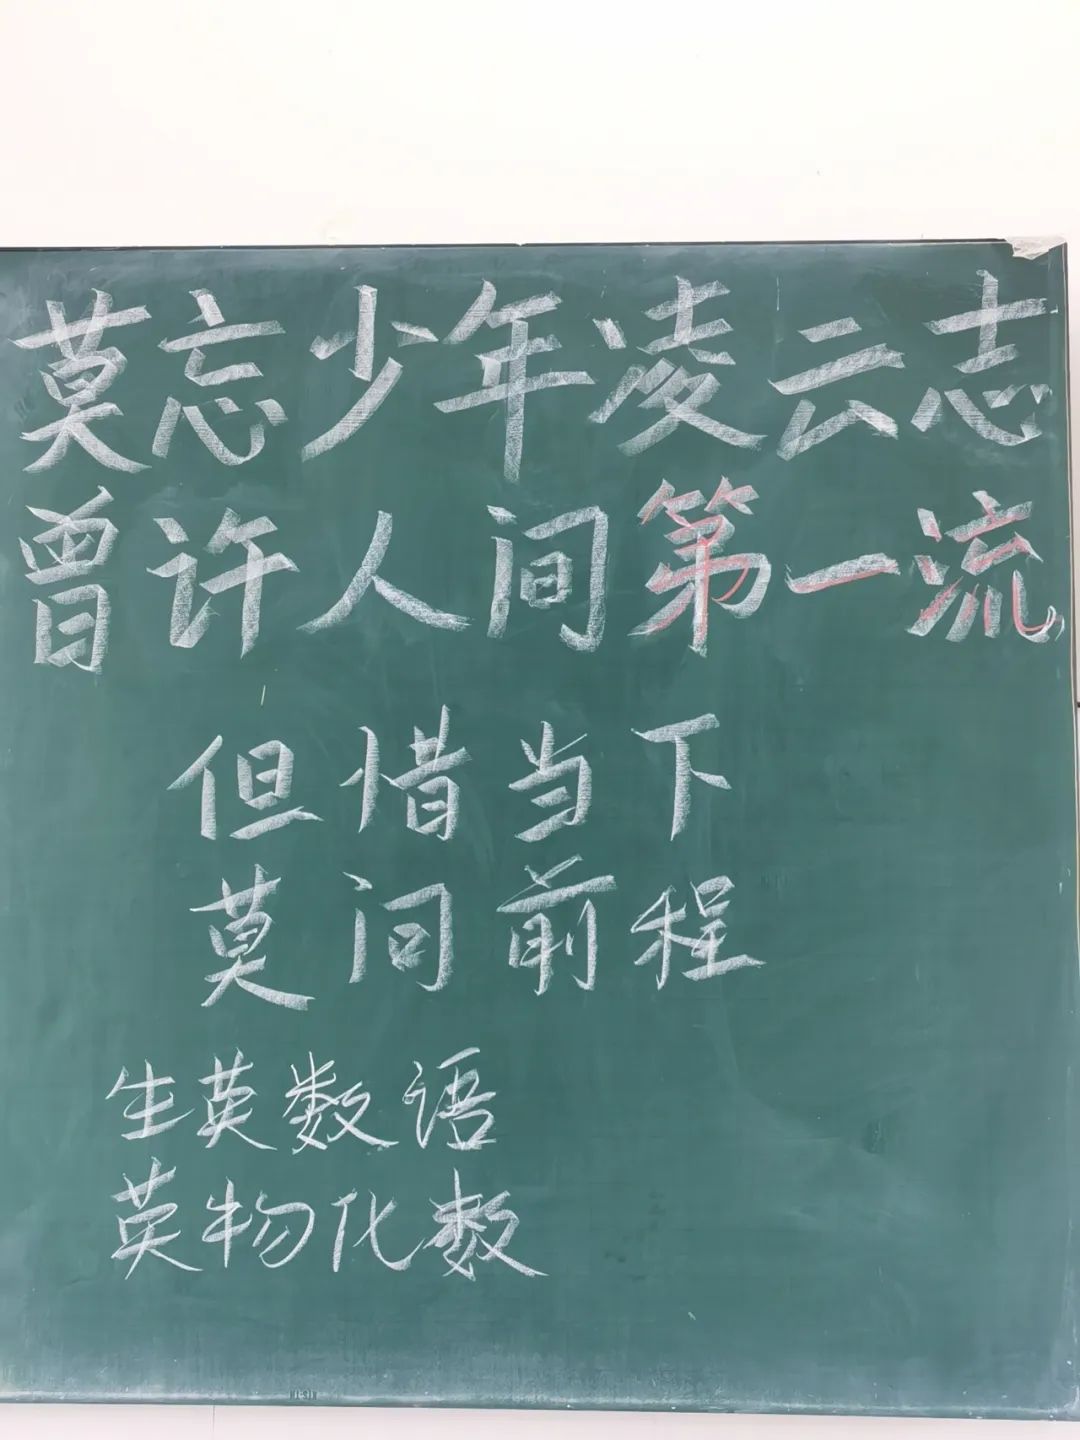 莫忘少年凌云志
曾许人间第一流
但惜当下
莫问前程
生英数语
英物化数